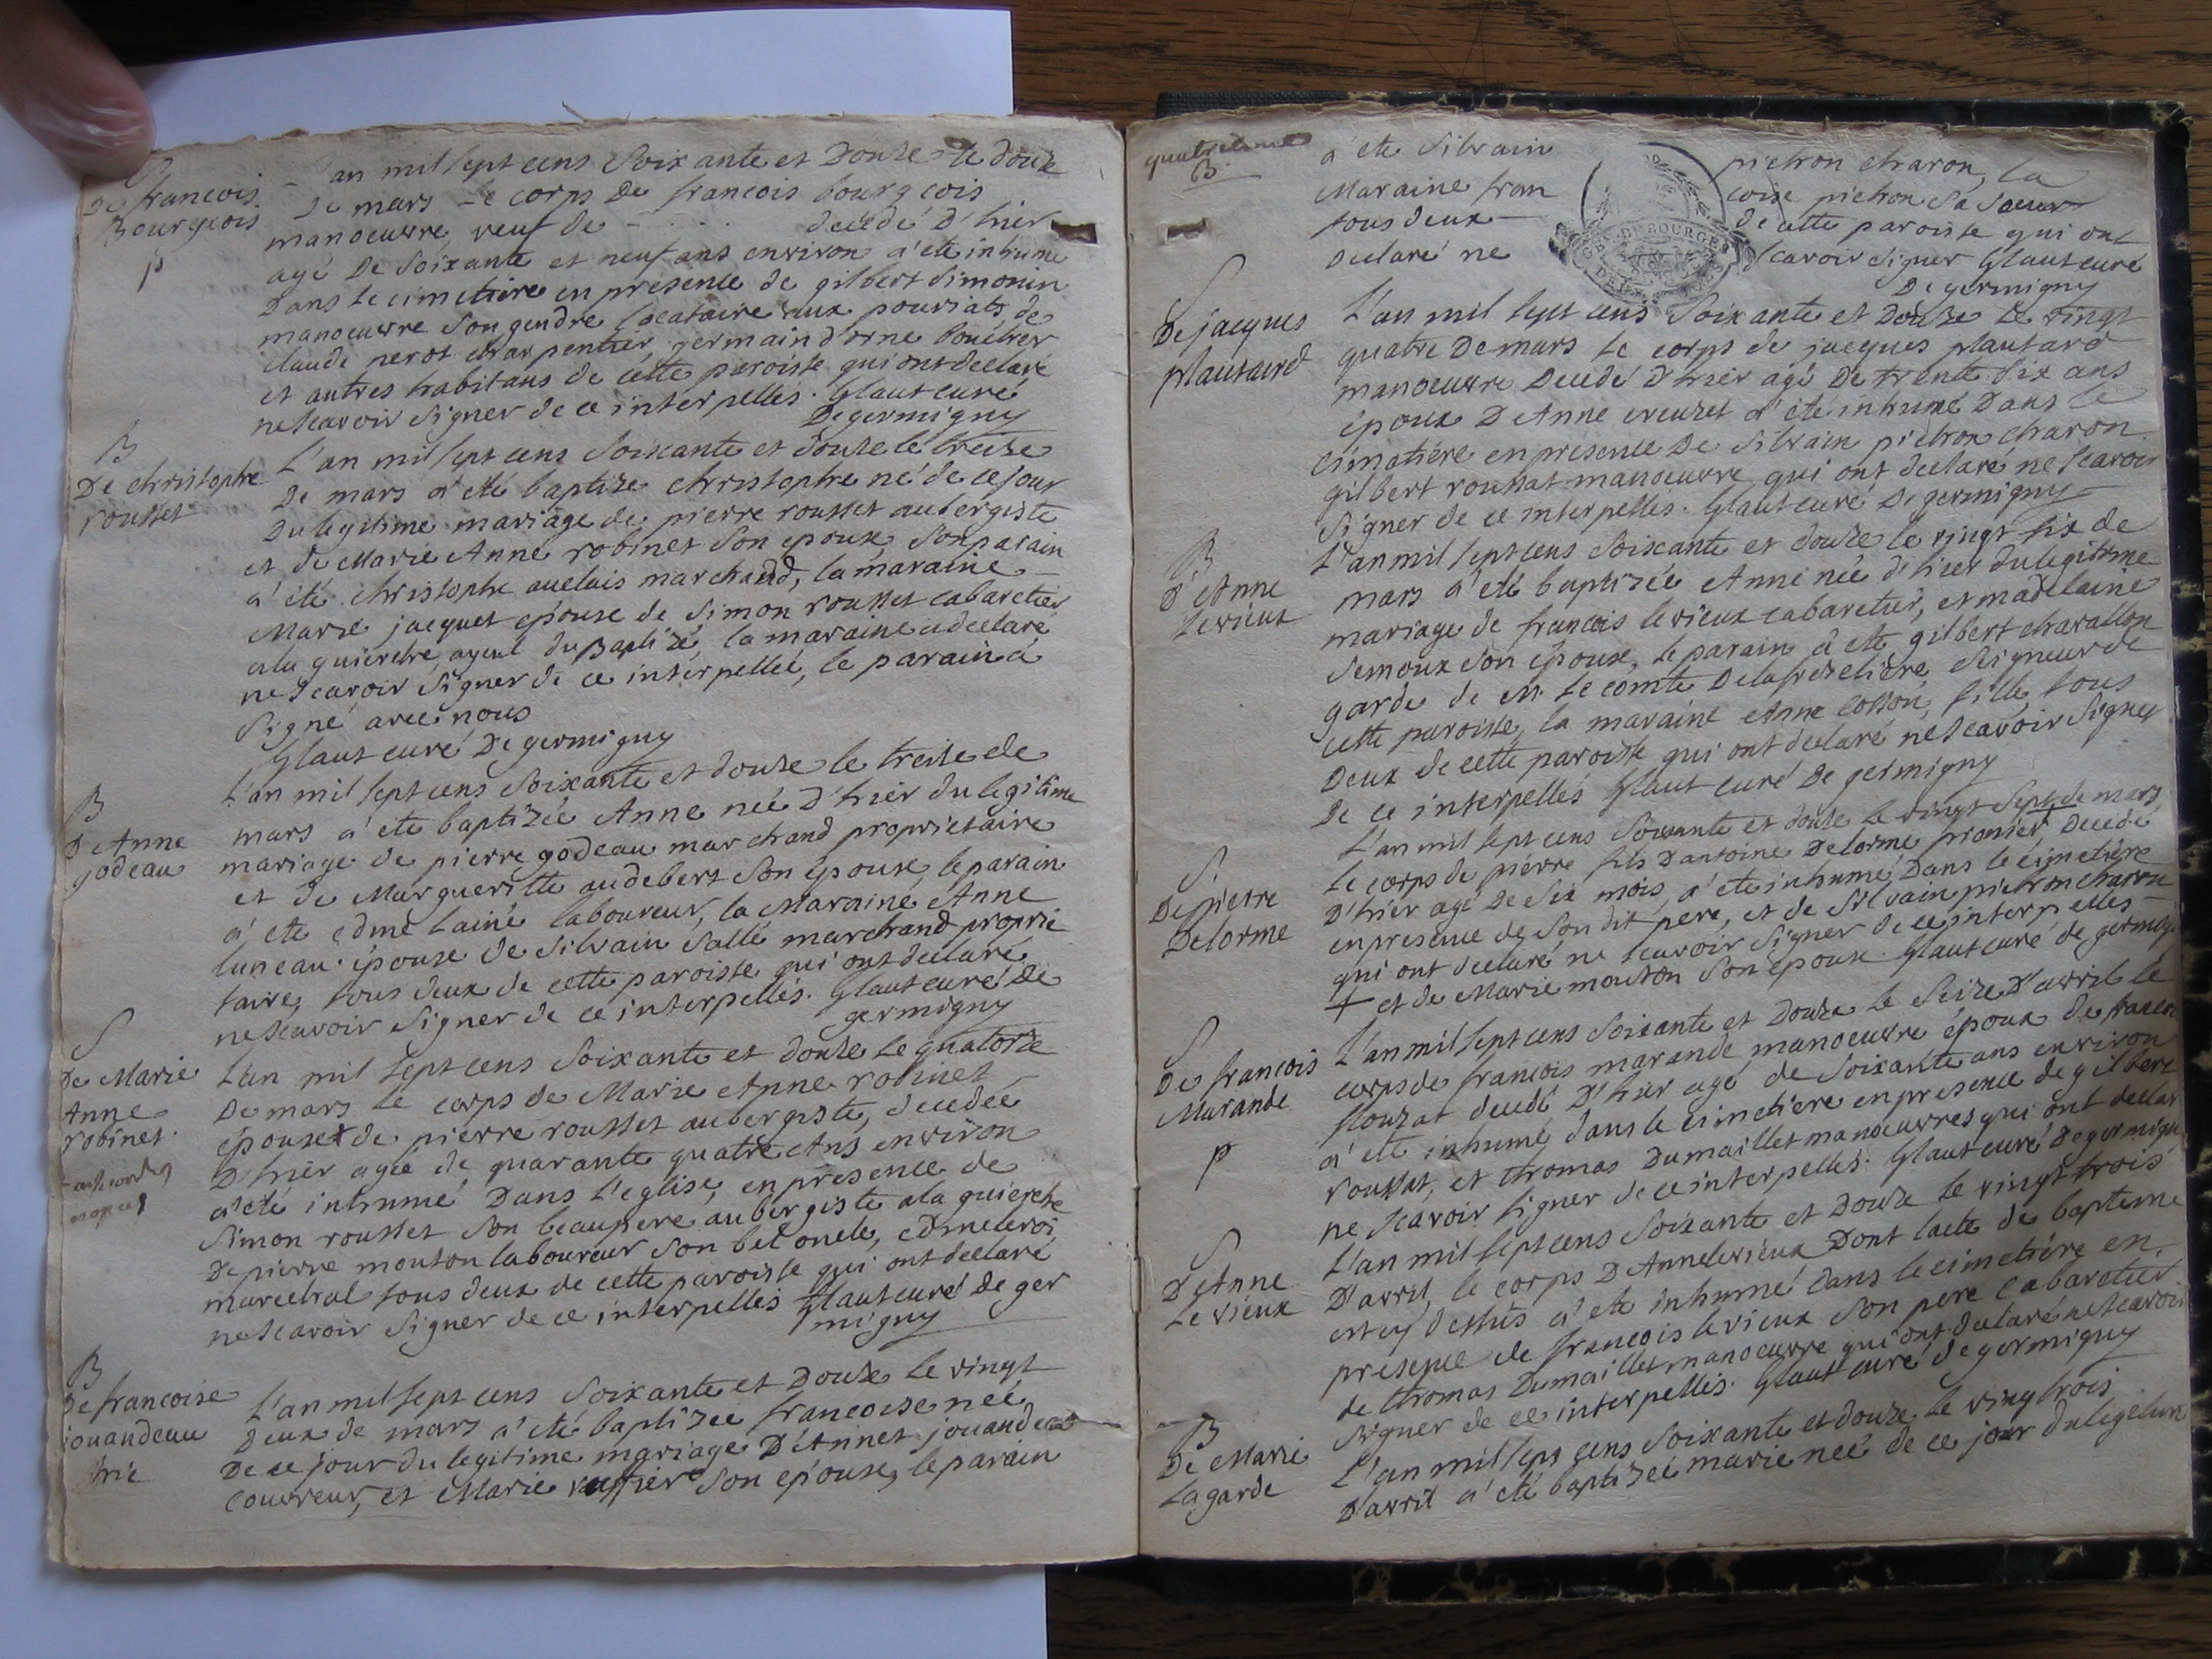 S
De francois
Bourgeois
p
L'an mil sept cens Soixante et Douze le douze
de mars Le corps De francois bourgeois
manoeuvre, veuf de - . . . . decedé D'hier
agé De Soixante et neuf ans environ a'ete inhumé
Dans le cimetiere en presence de gilbert Simonin
manoeuvre Son gendre locataire aux pouriats de
claude perot charpentier, germain d'orne boucher
et autres habitans de cette paroisse qui ont declaré
ne scavoir Signer de ce interpellés. Glaut curé
De germigny
B
De christophe
rousset
L'an mil sept cens Soixante et douze le treize
De mars a'eté baptizé christophe né de ce jour
Du legitime mariage de pierre rousset aubergiste
et de Marie Anne robinet Son epouse, Son parain
a'eté christophe auclais marchand, la maraine
Marie jacquet epouse de Simon rousset cabaretier
ala quierche, ayeul du Baptizé, la maraine a declaré
ne Scavoir Signer de ce interpellée, le parain a
Signé avec nous
Glaut curé De germigny
B
D'Anne
godeau
L'an mil sept cens Soixante et douze le treize de
mars a'eté baptizée Anne neé D'hier du legitime
mariage de pierre godeau marchand proprietaire
et de Margueritte audebert Son épouse, le parain
a'ete edme Lainé laboureur, la Maraine Anne
luneau épouse de Silvain Sallé marchand proprie
taire, tous deux de cette paroisse qui ont declaré
ne Scavoir Signer de ce interpellés. Glaut curé de
germigny
S
De Marie
Anne
robinet.
L'an mil sept cens Soixante et douze Le quatorze
De mars Le corps de Marie Anne robinet
épouse de pierre rousset aubergiste, decedée
D'hier agée de quarante quatre Ans environ
a'eté inhumé Dans L'eglise, en presence de
Simon rousset Son beaupere aubergiste ala quierche
De pierre mouton laboureur Son bel oncle, edme leroi
marechal tous deux de cette paroisse qui ont declaré
ne Scavoir Signer de ce interpellés Glaut curé de ger
migny
B
De francoise
jouandeau
L'an mil sept cens Soixante et Douze Le vingt
Deux de mars a'eté baptizée francoise neé
De ce jour du legitime mariage D'Annet jouandeau
Couvreur, et Marie Son epouse, le parain
quatrieme
B
a'ete Silvain pichon charon, La
Maraine fran coise pichon Sa Soeur
tous deux de cette paroisse qui ont
Declaré ne Scavoir Signer Glaut curé
De germigny
G DE BOURGES
S
De jacques
plautard
L'an mil sept cens Soixante et Douze Le vingt
quatre De mars Le corps de jacques plautard
manoeuvre Decedé d'hier agé De trente Six ans
époux D'Anne creuzet a'ete inhumé Dans le
cimetiére en presence De Silvain pichon charon
gilbert roussat manoeuvre qui ont declaré ne Scavoir
Signer de ce interpellés. Glaut curé De germigny
B
D'Anne
Levieux
L'an mil sept cens Soixante et douze le vingt six de
mars a'eté baptizée Anne née d'hier du legitime
mariage de francois levieux cabaretier, et madelaine
Semoux Son épouse, le parain a'ete gilbert chavallon
garde de M. Le comte Delafrezeliére, Seigneur de
cette paroisse, la maraine Anne Cosson, fille tous
Deux de cette paroisse qui ont declaré ne Scavoir Signer
De ce interpellés Glaut curé De germigny
S
De pierre
Delorme
L'an mil sept cens Soixante et douze Le vingt Sept de mars
Le corps de pierre fils D'antoine Delorme † Decedé
D'hier agé De Six mois a'ete inhumé Dans le cimetiére
en presence de Son dit pere, et de Silvain pichon charon
qui ont declaré ne Scavoir Signer de ce interpellés
† et de Marie mouton Son épouse. Glaut curé de germigny
S
De francois
Marande
p
L'an mil sept cens Soixante et Douze Le Seize D'avril le
corps de francois marande manoeuvre époux de francoise
decedé D'hier agé de Soixante ans environ
a'ete inhumé, dans le cimetiere en presence de gilbert
roussat, et thomas Dumaillet manoeuvres qui ont declaré
ne Scavoir Signer de ce interpellés. Glaut curé De germigny
S
D'Anne
Le vieux
L'an mil sept cens Soixante et Douze Le vingt trois
D'avril, le corps D'Anne levieux Dont lacte de bapteme
est cy dessus a'ete inhumé dans le cimetiére en
presence de francois levieux Son pere cabaretier
de thomas Dumaillet manoeuvre qui ont declaré ne Scavoir
Signer de ce interpellés. Glaut curé de germigny
B
De Marie
Lagarde
L'an mil sept cens Soixante et douze, le vingt trois
D'avril a'eté baptizeé marie neé de ce jour du legitime